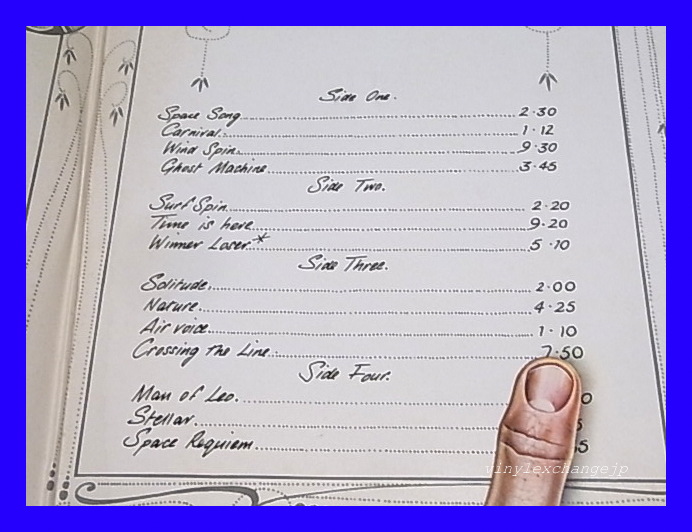 Side One.
Space Song 2·30
Carnival 1·12
Wind Spin 9·30
Ghost Machine 3·45
Side Two.
Surf Spin 2·20
Time is here 9·20
Winner Loser* 5·10
Side Three.
Solitude 2·00
Nature 4·25
Air voice 1·10
Crossing the Line 7·50
Side Four.
Man of Leo.
Stellar
Space Requiem
vinylexchangejp